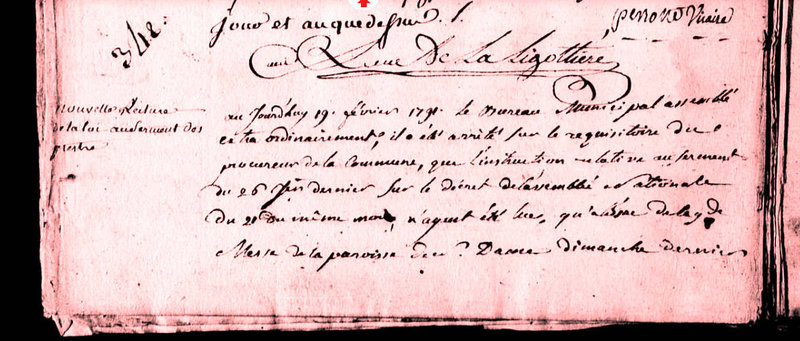 348.
jour et an que dessus. /.
perono Vicaire
De La Ligottiere
nouvelle Lecture
de la loi au serment des
prestre
au Jourd'huy 19. février 1791. Le Bureau Municipal assemblé
extra ordinairement, il a été arrêté sur le requisitoire du
procureur de la Commune, que l'instruction relative au serment
du 26 Jer dernier sur le décret de l'assemblé nationale
du 21 du même mois, n'ayant été lue, qu'à l'issue de la gde
Messe de la paroisse de n. Dame dimanche dernier